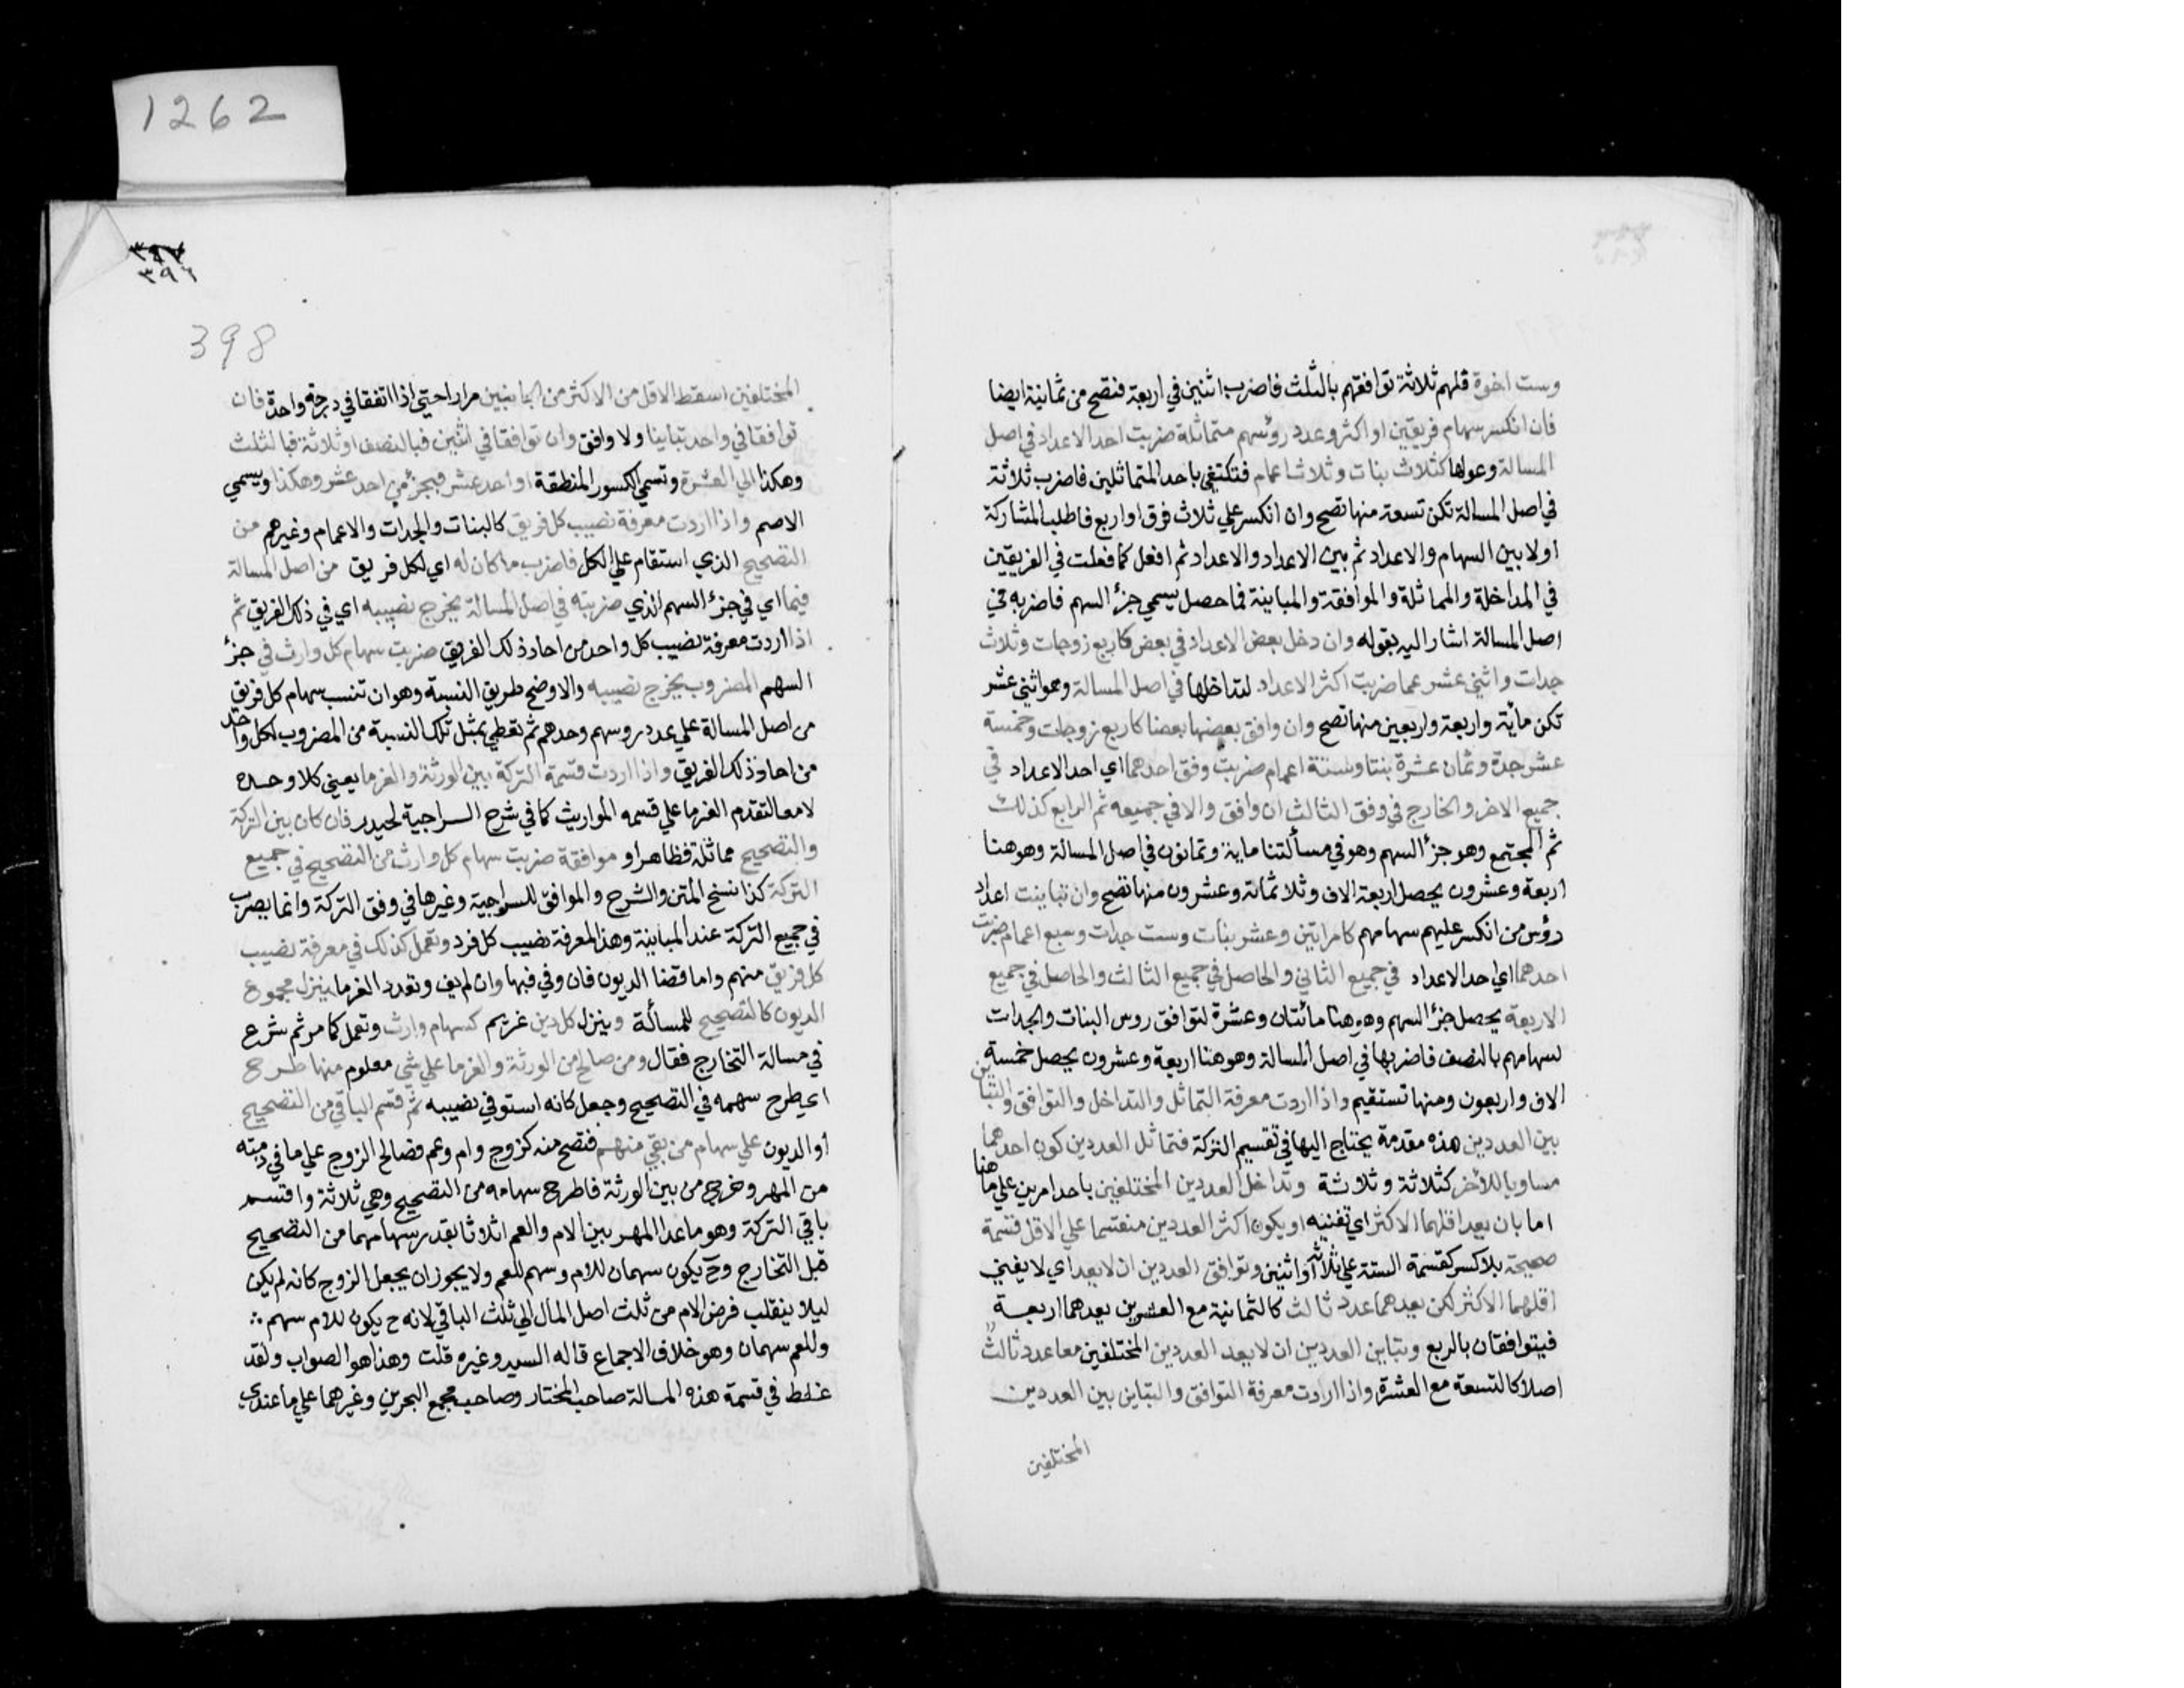 وست اخوة فلهم ثلاثة توافقهم بالثلث فاضرب اثنين في اربعة فتصح من ثمانية ايضا
فان انكسر سهام فريقين او اكثر وعدد رؤسهم متماثلة ضربت احد الاعداد في اصل
المسالة وعولها كثلاث بنات وثلاث اعمام فتكتفي باحد المتماثلين فاضرب ثلاثة
في اصل المسالة تكن تسعة منها تصح وان انكسر علي ثلاث فرق او اربع فاطلب المشاركة
اولا بين السهام والاعداد ثم بين الاعداد والاعداد ثم افعل كما فعلت في الفريقين
في المداخلة والمماثلة والموافقة والمباينة فما حصل يسمي جزء السهم فاضربه في
اصل المسالة اشار اليه بقوله وان دخل بعض الاعداد في بعض كاربع زوجات وثلاث
جدات واثني عشر عما ضربت اكثر الاعداد لتداخلها في اصل المسالة وهو اثني عشر
تكن مائة واربعة واربعين منها تصح وان وافق بعضها بعضا كاربع زوجات وخمسة
عشر جدة وثمان عشرة بنتا وستة اعمام ضربت وفق احدهما اي احد الاعداد في
جميع الاخر والخارج في وفق الثالث ان وافق والا في جميعه ثم الرابع كذلك
ثم المجتمع وهو جزء السهم وهو في مسألتنا ماية وثمانون في اصل المسالة وهو هنا
اربعة وعشرون يحصل اربعة الاف وثلاثمائة وعشرون منها تصح وان تباينت اعداد
رؤس من انكسر عليهم سهامهم كامراتين وعشر بنات وست جدات وسبع اعمام ضربت
احدهما اي احد الاعداد في جميع الثاني والحاصل في جميع الثالث والحاصل في جميع
الاربعة يحصل جزء السهم وهو هنا مائتان وعشرة لتوافق روس البنات والجدات
لسهامهم بالنصف فاضربها في اصل المسالة وهو هنا اربعة وعشرون يحصل خمسة
الاف واربعون ومنها تستقيم واذا اردت معرفة التماثل والتداخل والتوافق والتباين
بين العددين هذه مقدمة يحتاج اليها في تقسيم التركة فتماثل العددين كون احدهما
مساويا للأخر كثلاثة وثلاثة وتداخل العددين المختلفين باحد امرين علي ما هنا
اما بان يعد اقلهما الاكثر اي تفنيه او يكون اكثر العددين منقسما علي الاقل قسمة
صحيحة بلا كسر كقسمة الستة علي ثلاثة او اثنين وتوافق العددين ان لا يعد اي لا يفني
اقلهما الاكثر لكن يعدهما عدد ثالث كالثمانية مع العشرين يعدهما اربعة
فيتوافقان بالربع وتباين العددين ان لا يعد العددين المختلفين معا عدد ثالث
اصلا كالتسعة مع العشرة واذا اردت معرفة التوافق والتباين بين العددين
المختلفين
1262
٣٩٧
٣٩٦
398
المختلفين اسقط الاقل من الاكثر من الجانبين مرارا حتي اذا اتفقا في درجة واحدة فان
توافقا في واحد تباينا ولا وافق وان توافقا في اثنين فبالنصف او ثلاثة فبالثلث
وهكذا الي العشرة وتسمي الكسور المنطقة او احد عشر فبجزء من احد عشر وهكذا ويسمي
الاصم واذا اردت معرفة نصيب كل فريق كالبنات والجدات والاعمام وغيرهم من
التصحيح الذي استقام علي الكل فاضرب ما كان له اي لكل فريق من اصل المسالة
فيما اي في جزء السهم الذي ضربته في اصل المسالة يخرج نصيبه اي في ذلك الفريق ثم
اذا اردت معرفة نصيب كل واحد من احاد ذلك الفريق ضربت سهام كل وارث في جزء
السهم المضروب يخرج نصيبه والاوضح طريق النسبة وهو ان تنسب سهام كل فريق
من اصل المسالة علي عدد روسهم وحدهم ثم تعطي بمثل تلك النسبة من المضروب لكل واحد
من احاد ذلك الفريق واذا اردت قسمة التركة بين الورثة والغرما يعني كلا وحده
لا معا لتقدم الغرما علي قسمه المواريث كما في شرح السراجية لحيدر فان كان بين التركة
والتصحيح مماثلة فظاهر او موافقة ضربت سهام كل وارث من التصحيح في جميع
التركة كذا نسخ المتن والشرح والموافق للسراجية وغيرها في وفق التركة وانما يضرب
في جميع التركة عند المباينة وهذا لمعرفة نصيب كل فرد وتعمل كذلك في معرفة نصيب
كل فريق منهم واما قضا الديون فان وفي فبها وان لم يف وتعدد الغرما ينزل مجموع
الديون كالتصحيح للمسألة وينزل كل دين غريم كسهام وارث وتعمل كما مر ثم شرع
في مسالة التخارج فقال ومن صالح من الورثة والغرما علي شي معلوم منها طرح
اي يطرح سهمه في التصحيح وجعل كانه استوفي نصيبه ثم قسم الباقي من التصحيح
او الديون علي سهام من بقي منهم فتصح منه كزوج وام وعم فصالح الزوج علي ما في ذمته
من المهر وخرج من بين الورثة فاطرح سهامه من التصحيح وهي ثلاثة واقسم
باقي التركة وهو ما عدا المهر بين الام والعم اثلاثا بقدر سهامهما من التصحيح
قبل التخارج وح يكون سهمان للام وسهم للعم ولا يجوز ان يجعل الزوج كانه لم يكن
ليلا ينقلب فرض الام من ثلث اصل المال الي ثلث الباقي لانه ح يكون للام سهم
وللعم سهمان وهو خلاف الاجماع قاله السيد وغيره قلت وهذا هو الصواب ولقد
غلط في قسمة هذه المسالة صاحب المختار وصاحب مجمع البحرين وغيرهما علي ما عندي